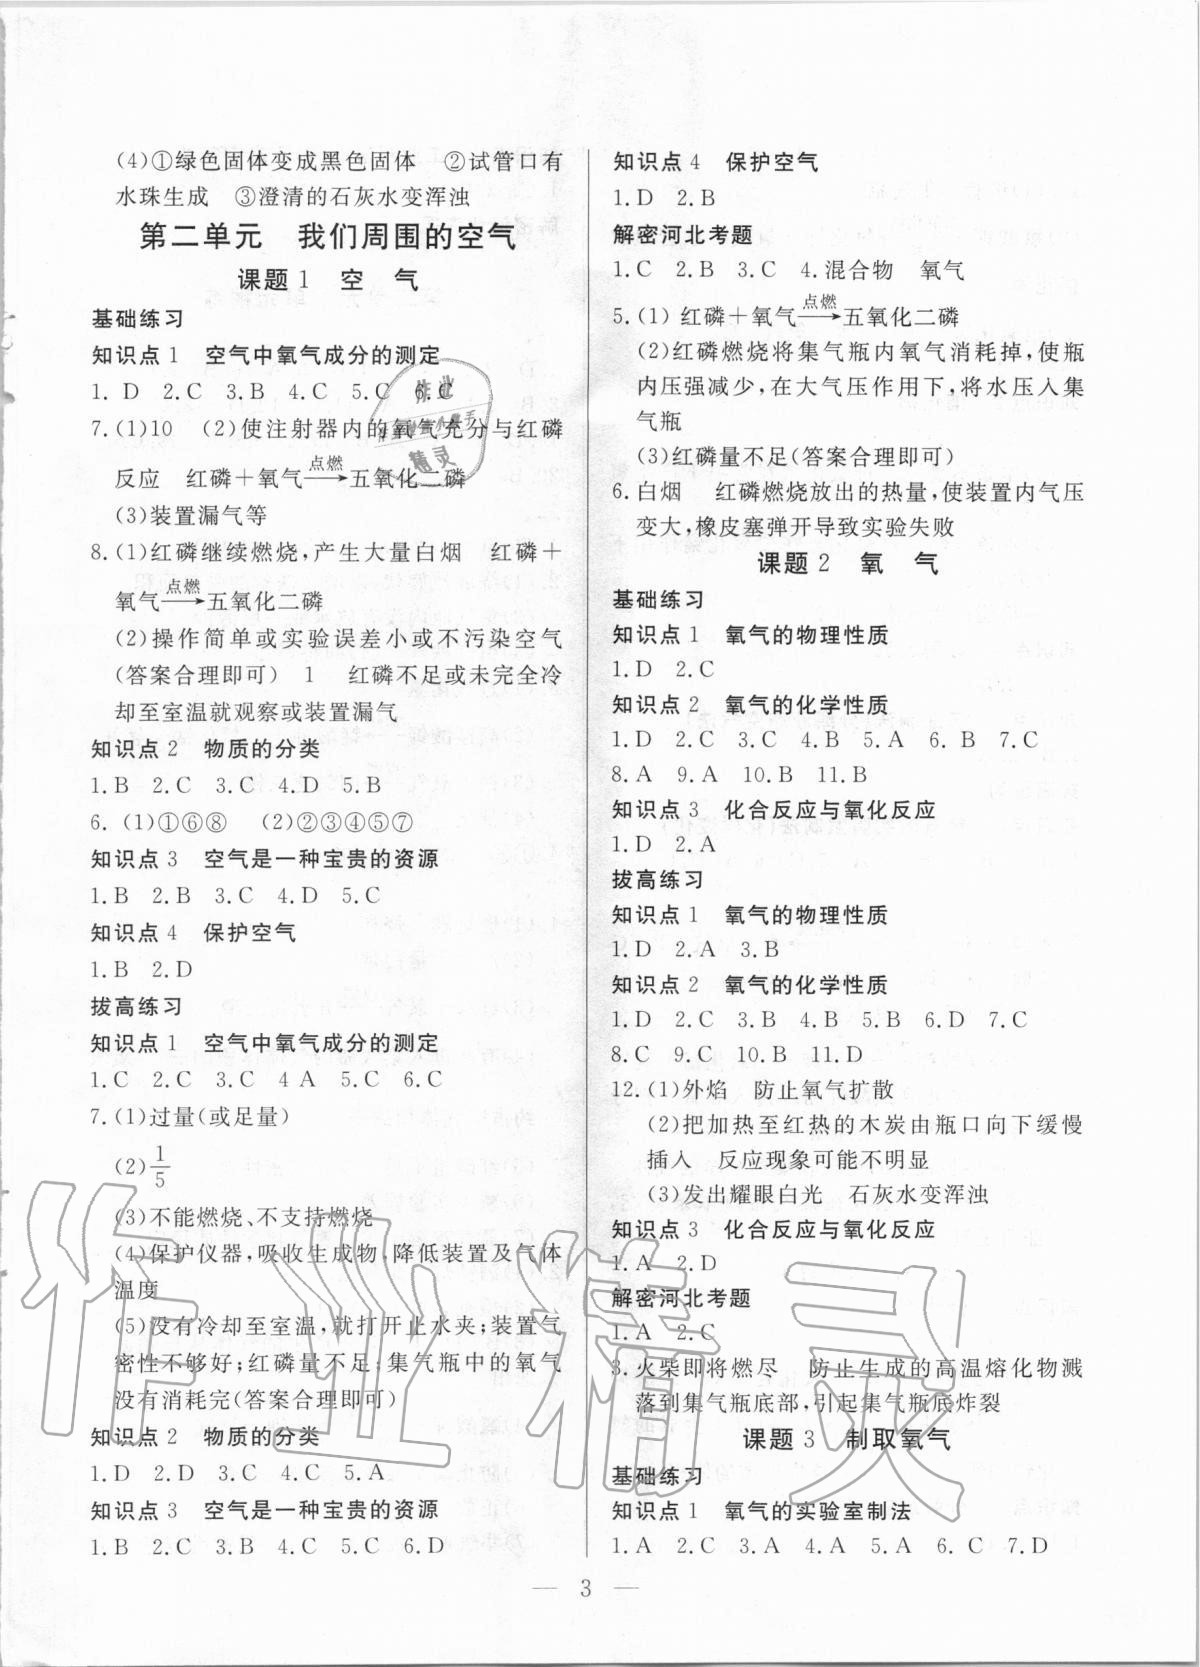 (4)①绿色固体变成黑色固体　②试管口有
水珠生成　③澄清的石灰水变浑浊
第二单元　我们周围的空气
课题1　空　气
基础练习
知识点1　空气中氧气成分的测定
1. D　2.C　3.B　4.C　5.C　6.C
7.(1)10　(2)使注射器内的氧气充分与红磷
反应　红磷＋氧气 点燃→ 五氧化二磷
(3)装置漏气等
8.(1)红磷继续燃烧,产生大量白烟　红磷＋
氧气 点燃→ 五氧化二磷
(2)操作简单或实验误差小或不污染空气
(答案合理即可)　1　红磷不足或未完全冷
却至室温就观察或装置漏气
知识点2　物质的分类
1.B　2.C　3.C　4.D　5.B
6.(1)①⑥⑧　(2)②③④⑤⑦
知识点3　空气是一种宝贵的资源
1.B　2.B　3.C　4.D　5.C
知识点4　保护空气
1.B　2.D
拔高练习
知识点1　空气中氧气成分的测定
1.C　2.C　3.C　4 A　5.C　6.C
7.(1)过量(或足量)
(2)1/5
(3)不能燃烧、不支持燃烧
(4)保护仪器,吸收生成物,降低装置及气体
温度
(5)没有冷却至室温,就打开止水夹;装置气
密性不够好;红磷量不足;集气瓶中的氧气
没有消耗完(答案合理即可)
知识点2　物质的分类
1.D　2.D　3.C　4.C　5.A
知识点3　空气是一种宝贵的资源
1.B　2.D　3.C　4.B　5.C　6.D
知识点4　保护空气
1.D　2.B
解密河北考题
1.C　2.B　3.C　4.混合物　氧气
5.(1) 红磷＋氧气 点燃→ 五氧化二磷
(2)红磷燃烧将集气瓶内氧气消耗掉,使瓶
内压强减少,在大气压作用下,将水压入集
气瓶
(3)红磷量不足(答案合理即可)
6.白烟　红磷燃烧放出的热量,使装置内气压
变大,橡皮塞弹开导致实验失败
课题2　氧　气
基础练习
知识点1　氧气的物理性质
1.D　2.C
知识点2　氧气的化学性质
1.D　2.D　3.C　4.B　5.A　6. B　7.C
8.A　9.A　10.B　11.B
知识点3　化合反应与氧化反应
1.D　2.A
拔高练习
知识点1　氧气的物理性质
1.D　2.A　3.B
知识点2　氧气的化学性质
1.D　2.C　3.B　4.B　5.B　6.D　7.C
8.C　9.C　10.B　11.D
12.(1)外焰　防止氧气扩散
(2)把加热至红热的木炭由瓶口向下缓慢
插入　反应现象可能不明显
(3)发出耀眼白光　石灰水变浑浊
知识点3　化合反应与氧化反应
1.A　2.D
解密河北考题
1.A　2.C
3.火柴即将燃尽　防止生成的高温熔化物溅
落到集气瓶底部,引起集气瓶底炸裂
课题3　制取氧气
基础练习
知识点1　氧气的实验室制法
1.A　2.C　3.A　4.A　5.A　6.C　7.D
— 3 —
作业精灵